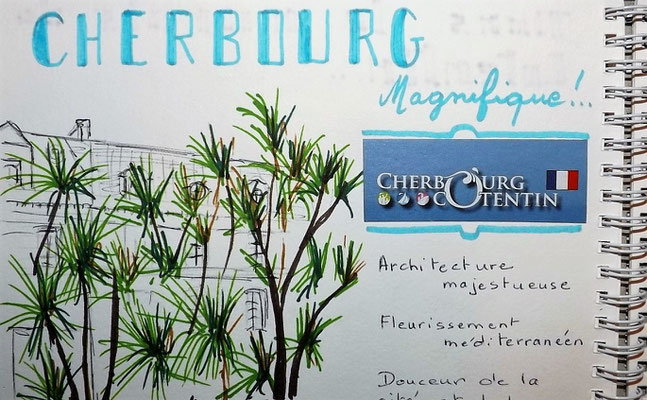 CHERBOURG
Magnifique!..
CHERBOURG
COTENTIN
Architecture
majestueuse
Fleurissement
méditerranéen
Douceur de la